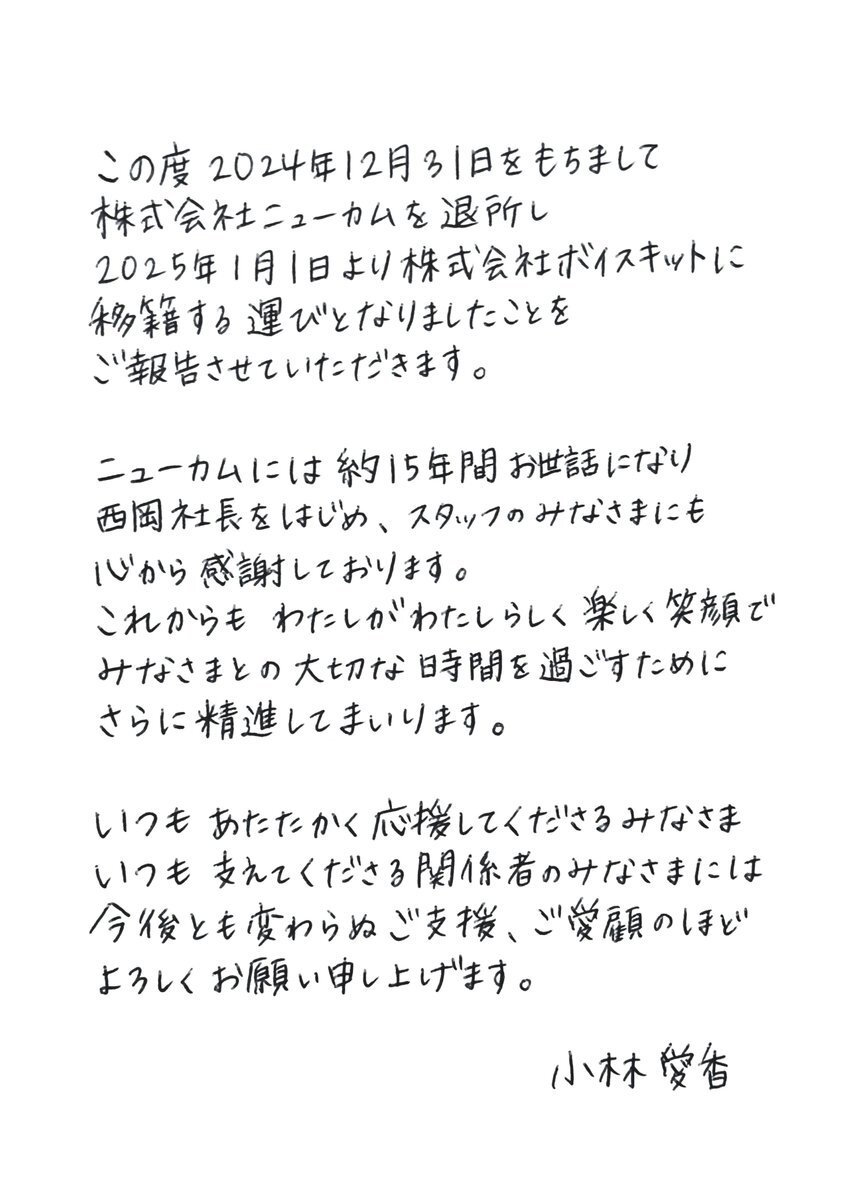 この度 2024年12月31日をもちまして
株式会社ニューカムを退所し
2025年1月1日より株式会社ボイスキットに
移籍する運びとなりましたことを
ご報告させていただきます。
ニューカムには約15年間お世話になり
西岡社長をはじめ、スタッフのみなさまにも
心から感謝しております。
これからも わたしがわたしらしく楽しく笑顔で
みなさまとの大切な時間を過ごすために
さらに精進してまいります。
いつも あたたかく応援してくださるみなさま
いつも 支えてくださる関係者のみなさまには
今後とも変わらぬご支援、ご愛顧のほど
よろしくお願い申し上げます。
小林愛香